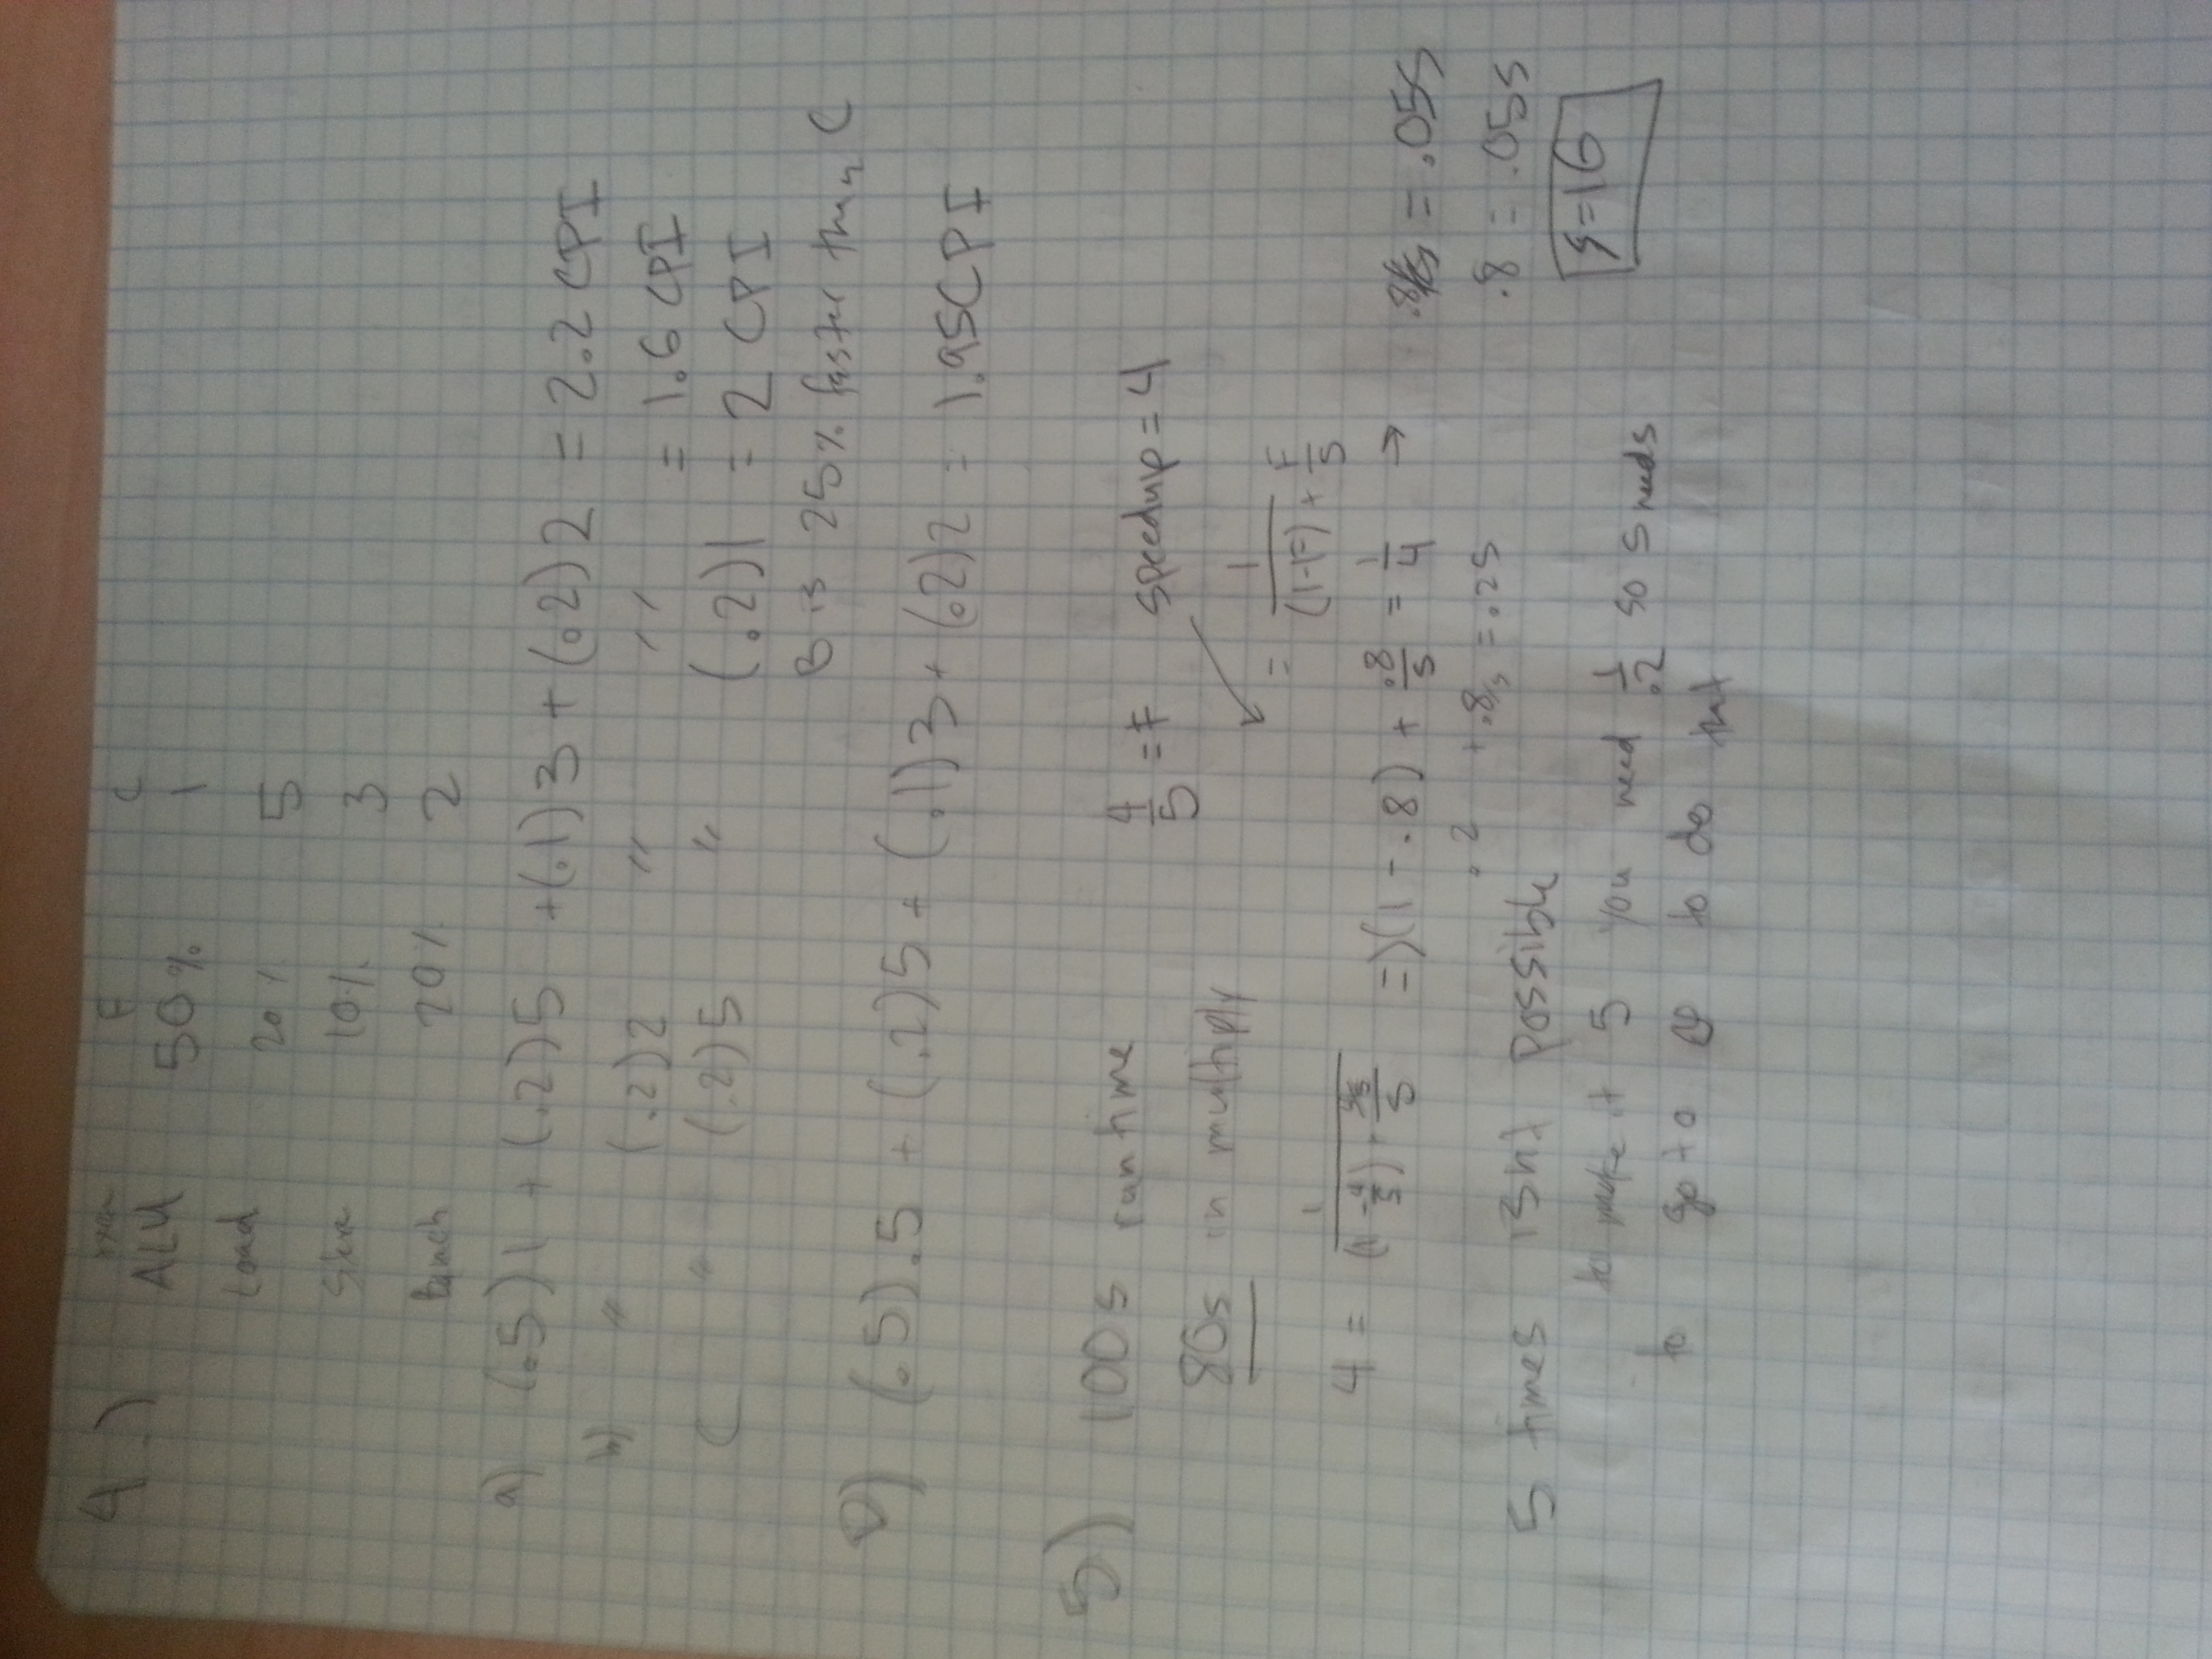 4) F C
ALU 50% 1
Load 20% 5
Store 10% 3
Branch 20% 2
a) (.5)1 + (.2)5 + (.1)3 + (.2)2 = 2.2 CPI
b) " (.2)2 " " = 1.6 CPI
C " (.2)5 " (.2)1 = 2 CPI
B is 25% faster than C
D) (.5).5 + (.2)5 + (.1)3 + (.2)2 = 1.95 CPI
5) 100s run time 4/5 = F speedup = 4
80s in multiply = 1/((1-F) + F/S)
4 = 1/((1-4/5) + 4/5/S) => (1 - .8) + .8/S = 1/4 → .8/S = .05S
.2 + .8/s = .25 .8 = .05S
5 times isnt possible S=16
to make it 5 you need 1/.2 so S needs
to go to ∞ to do that